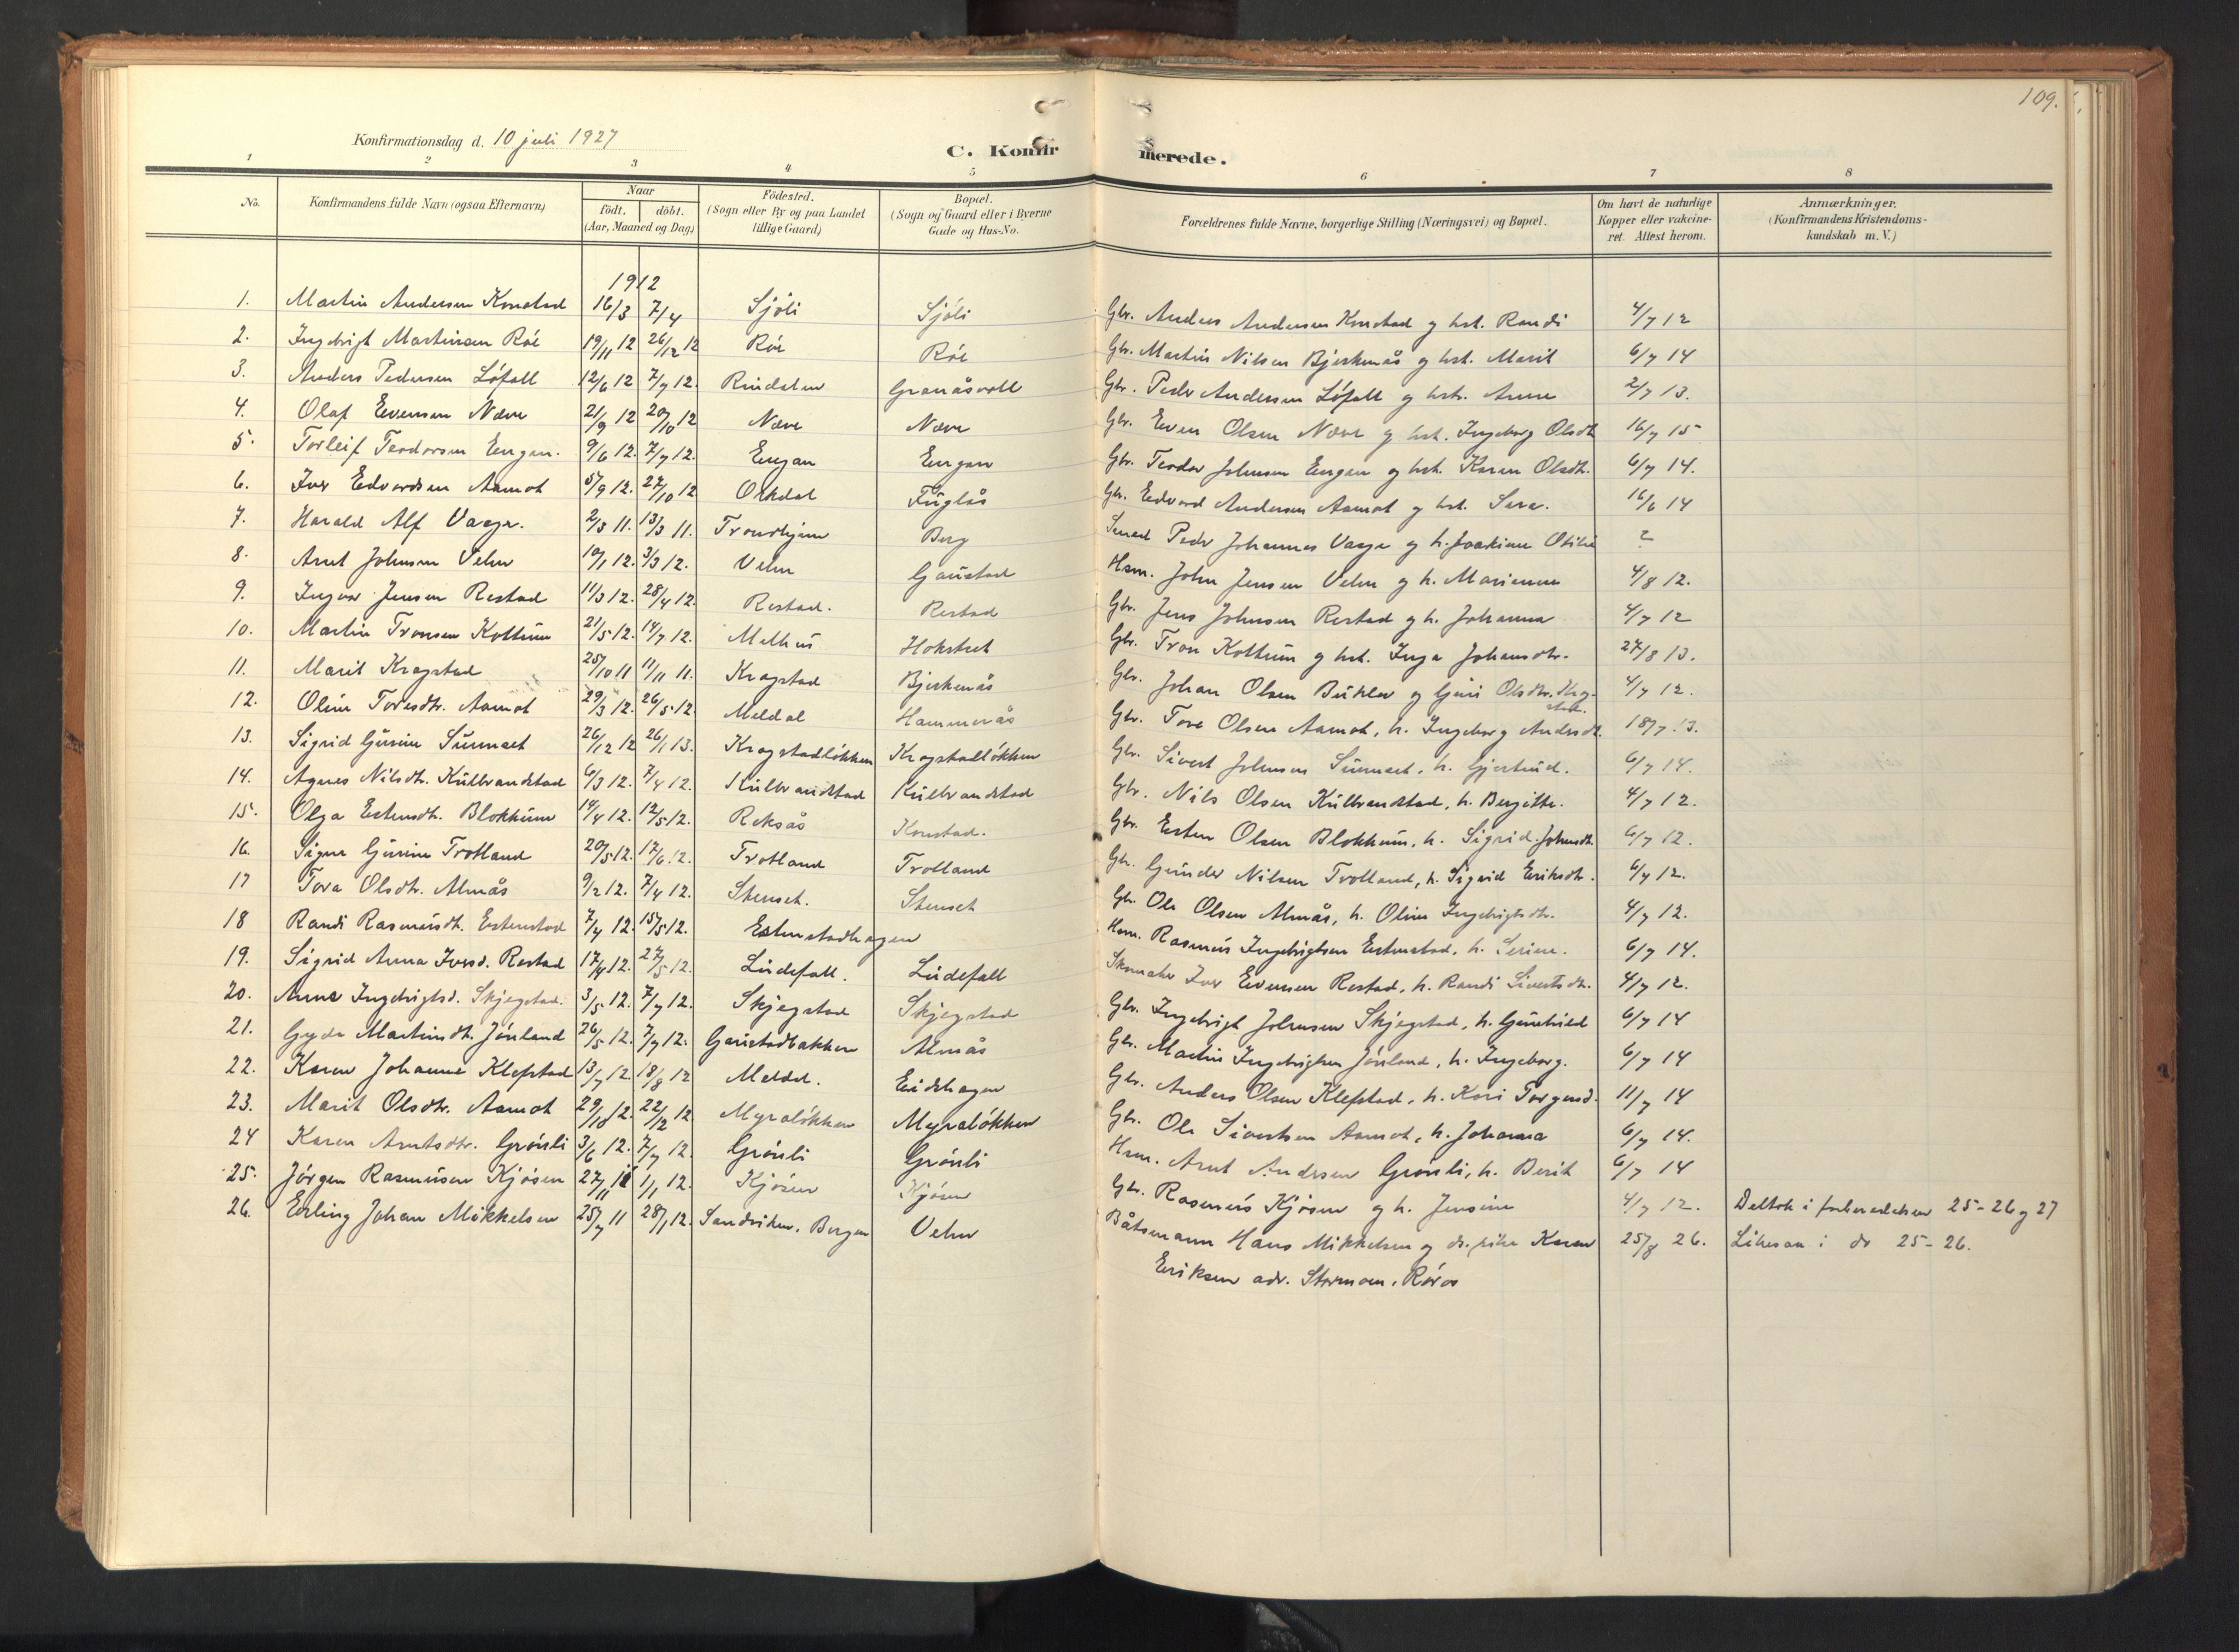 109.
Konfirmationsdag d. 10 juli 1927
C. Konfirmerede.
1 2 3 4 5 6 7 8
No. Konfirmandens fulde Navn (ogsaa Efternavn) Naar födt. döbt. (Aar, Maaned og Dag) Födested. (Sogn eller By og paa Landet tillige Gaard) Bopæl. (Sogn og Gaard eller i Byerne Gade og Hus-No. Forældrenes fulde Navne, borgerlige Stilling (Næringsvei) og Bopæl. Om havt de naturlige Kopper eller vakcineret. Attest herom. Anmærkninger. (Konfirmandens Kristendomskundskab m. V.)
1912
1. Martin Andersen Konstad 16/3 7/4 Sjöli Sjöli Gbr. Anders Andersen Konstad g hst. Randi 4/7 12
2. Ingebrigt Martinsen Röe 19/11 12 26/12 12 Röe Röe Gbr. Martin Nilsen Bjerkenås g hst. Marit 6/7 14
3. Anders Pedersen Löfall 12/6 12 7/7 12. Rindalen Granåsvoll Gbr. Peder Andersen Löfall g hst. Anne 2/7 13.
4. Olaf Evensen Næve 21/9 12 20/10 12 Næve Næve Gbr. Even Olsen Næve g hst. Ingeborg Olsdt. 16/7 15
5. Torleif Teodorsen Engan. 9/6 12. 7/7 12. Engan Engan Gbr. Teodor Johnsen Engan g hst. Karen Olsdtr. 6/7 14.
6. Iver Edvardsen Aamot 5/9 12. 27/10 12 Orkdal Fuglås Gbr. Edvard Andersen Aamot g hst. Sara. 16/6 14
7. Harald Alf Vagge. 2/3 11. 13/3 11. Trondhjem Berg Smed Peder Johannes Vagge g h. Joakime Otilie ?
8. Arnt Johnsen Velve 10/1 12. 3/3 12. Velve Gaustad Hsm. John Jensen Velve g h. Marianne 4/8 12.
9. Ingvar Jensen Restad 11/3 12. 28/4 12. Restad. Restad Gbr. Jens Johnsen Restad g h. Johanna 4/7 12
10. Martin Tronsen Kottum 21/5 12. 14/7 12. Melhus Hokstret Gbr. Tron Kottum g hst. Inga Johansdtr. 27/8 13.
11. Marit Kragstad 25/10 11 11/11 11. Kragstad Bjerkenås Gbr. Johan Olsen Bukler g Guri Olsdtr. Krag- 4/7 12.
stad.
12. Oline Toresdtr. Aamot 29/3 12. 26/5 12 Meldal Hammerås Gbr. Tore Olsen Aamot, h. Ingeborg Andersdt. 18/7 13.
13. Sigrid Gurine Sunnset 26/12 12 26/1 13. Kragstadlökken Kragstadlökken Gbr. Sivert Johnsen Sunnset, h. Gjertrud. 6/7 14.
14. Agnes Nilsdtr. Kulbrandstad 6/3 12. 7/4 12. Kulbrandstad Kulbrandstad Gbr. Nils Olsen Kulbrandstad, h. Bergitte. 4/7 12.
15. Olga Estensdtr. Blokkum 14/4 12. 12/5 12. Reksås Konstad. Gbr. Esten Olsen Blokkum, h. Sigrid Johnsdt. 6/7 12.
16. Signe Gurine Trotland 20/5 12. 17/6 12. Trotland Trotland Gbr. Gunder Nilsen Trotland, h. Sigrid Eriksdtr. 6/7 12.
17 Tora Olsdtr. Almås 9/2 12. 7/4 12. Stenset. Stenset Gbr. Ole Olsen Almås, h. Oline Ingebrigtsdtr. 4/7 12.
18 Randi Rasmusdt. Estenstad 7/4 12. 15/5 12. Estenstadhagen Hsm. Rasmus Ingebrigtsen Estenstad, h. Serine. 6/7 14.
19. Sigrid Anna Iversd. Restad 17/4 12. 27/5 12. Lidefall. Lidefall Skomaker Iver Evensen Restad, h. Randi Sivertsdtr. 4/7 12.
20. Anne Ingebrigtsd. Skjegstad. 3/5 12. 7/7 12. Skjegstad Skjegstad Gbr. Ingebrigt Johnsen Skjegstad, h. Gunhild 6/7 14
21. Gyda Martinsdt. Jönland 26/5 12. 7/7 12. Gaustadbakken Almås Gbr. Martin Ingebrigtsen Jönland, h. Ingeborg. 6/7 14
22. Karen Johanne Klefstad 13/7 12. 18/8 12 Meldal. Eidshagen Gbr. Anders Olsen Klefstad, h. Kari Torgersd. 11/7 14
23. Marit Olsdtr. Aamot 29/10 12. 22/12 12 Myralökken Myralökken Gbr. Ole Sivertsen Aamot, h. Johanna 6/7 14.
24 Karen Arntsdtr. Grönli 3/6 12. 7/7 12. Grönli Grönli Hsm. Arnt Andersen Grönli, h. Berit 6/7 14
25. Jörgen Rasmusen Kjösen 27/11 11 1/1 12. Kjösen Kjösen Gbr. Rasmus Kjösen g h. Jensine 4/7 12. Deltok i forberedelsen 25-26 g 27
26. Erling Johan Mikkelsen 25/7 11 28/1 12. Sandviken, Bergen Velve Båtsmann Hans Mikkelsen g ds. pike Karen 25/8 26. Likesaa i do 25-26.
Eriksen adr. Stormoen, Röros